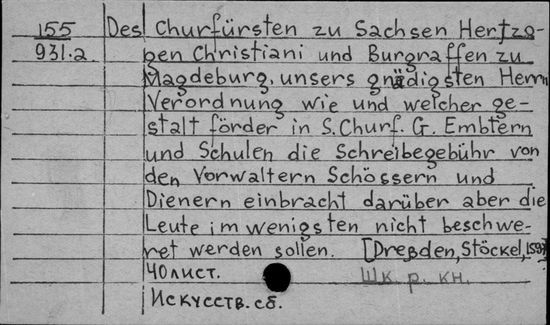 155 Des Churfürsten zu Sachsen Hertzo-
931.2 gen Christiani und Burgraffen zu
Magdeburg, unsers gnädigsten Herrn
Verordnung wie und welcher ge-
stalt förder in S. Churf. G. Embtern
und Schulen die Schreibegebühr von
den Vorwaltern Schössern und
Dienern einbracht darüber aber die
Leute im wenigsten nicht beschwe-
ret werden sollen. [Dreßden, Stöckel,
40 лист. Шк. р. кн.
Искусств. сб.